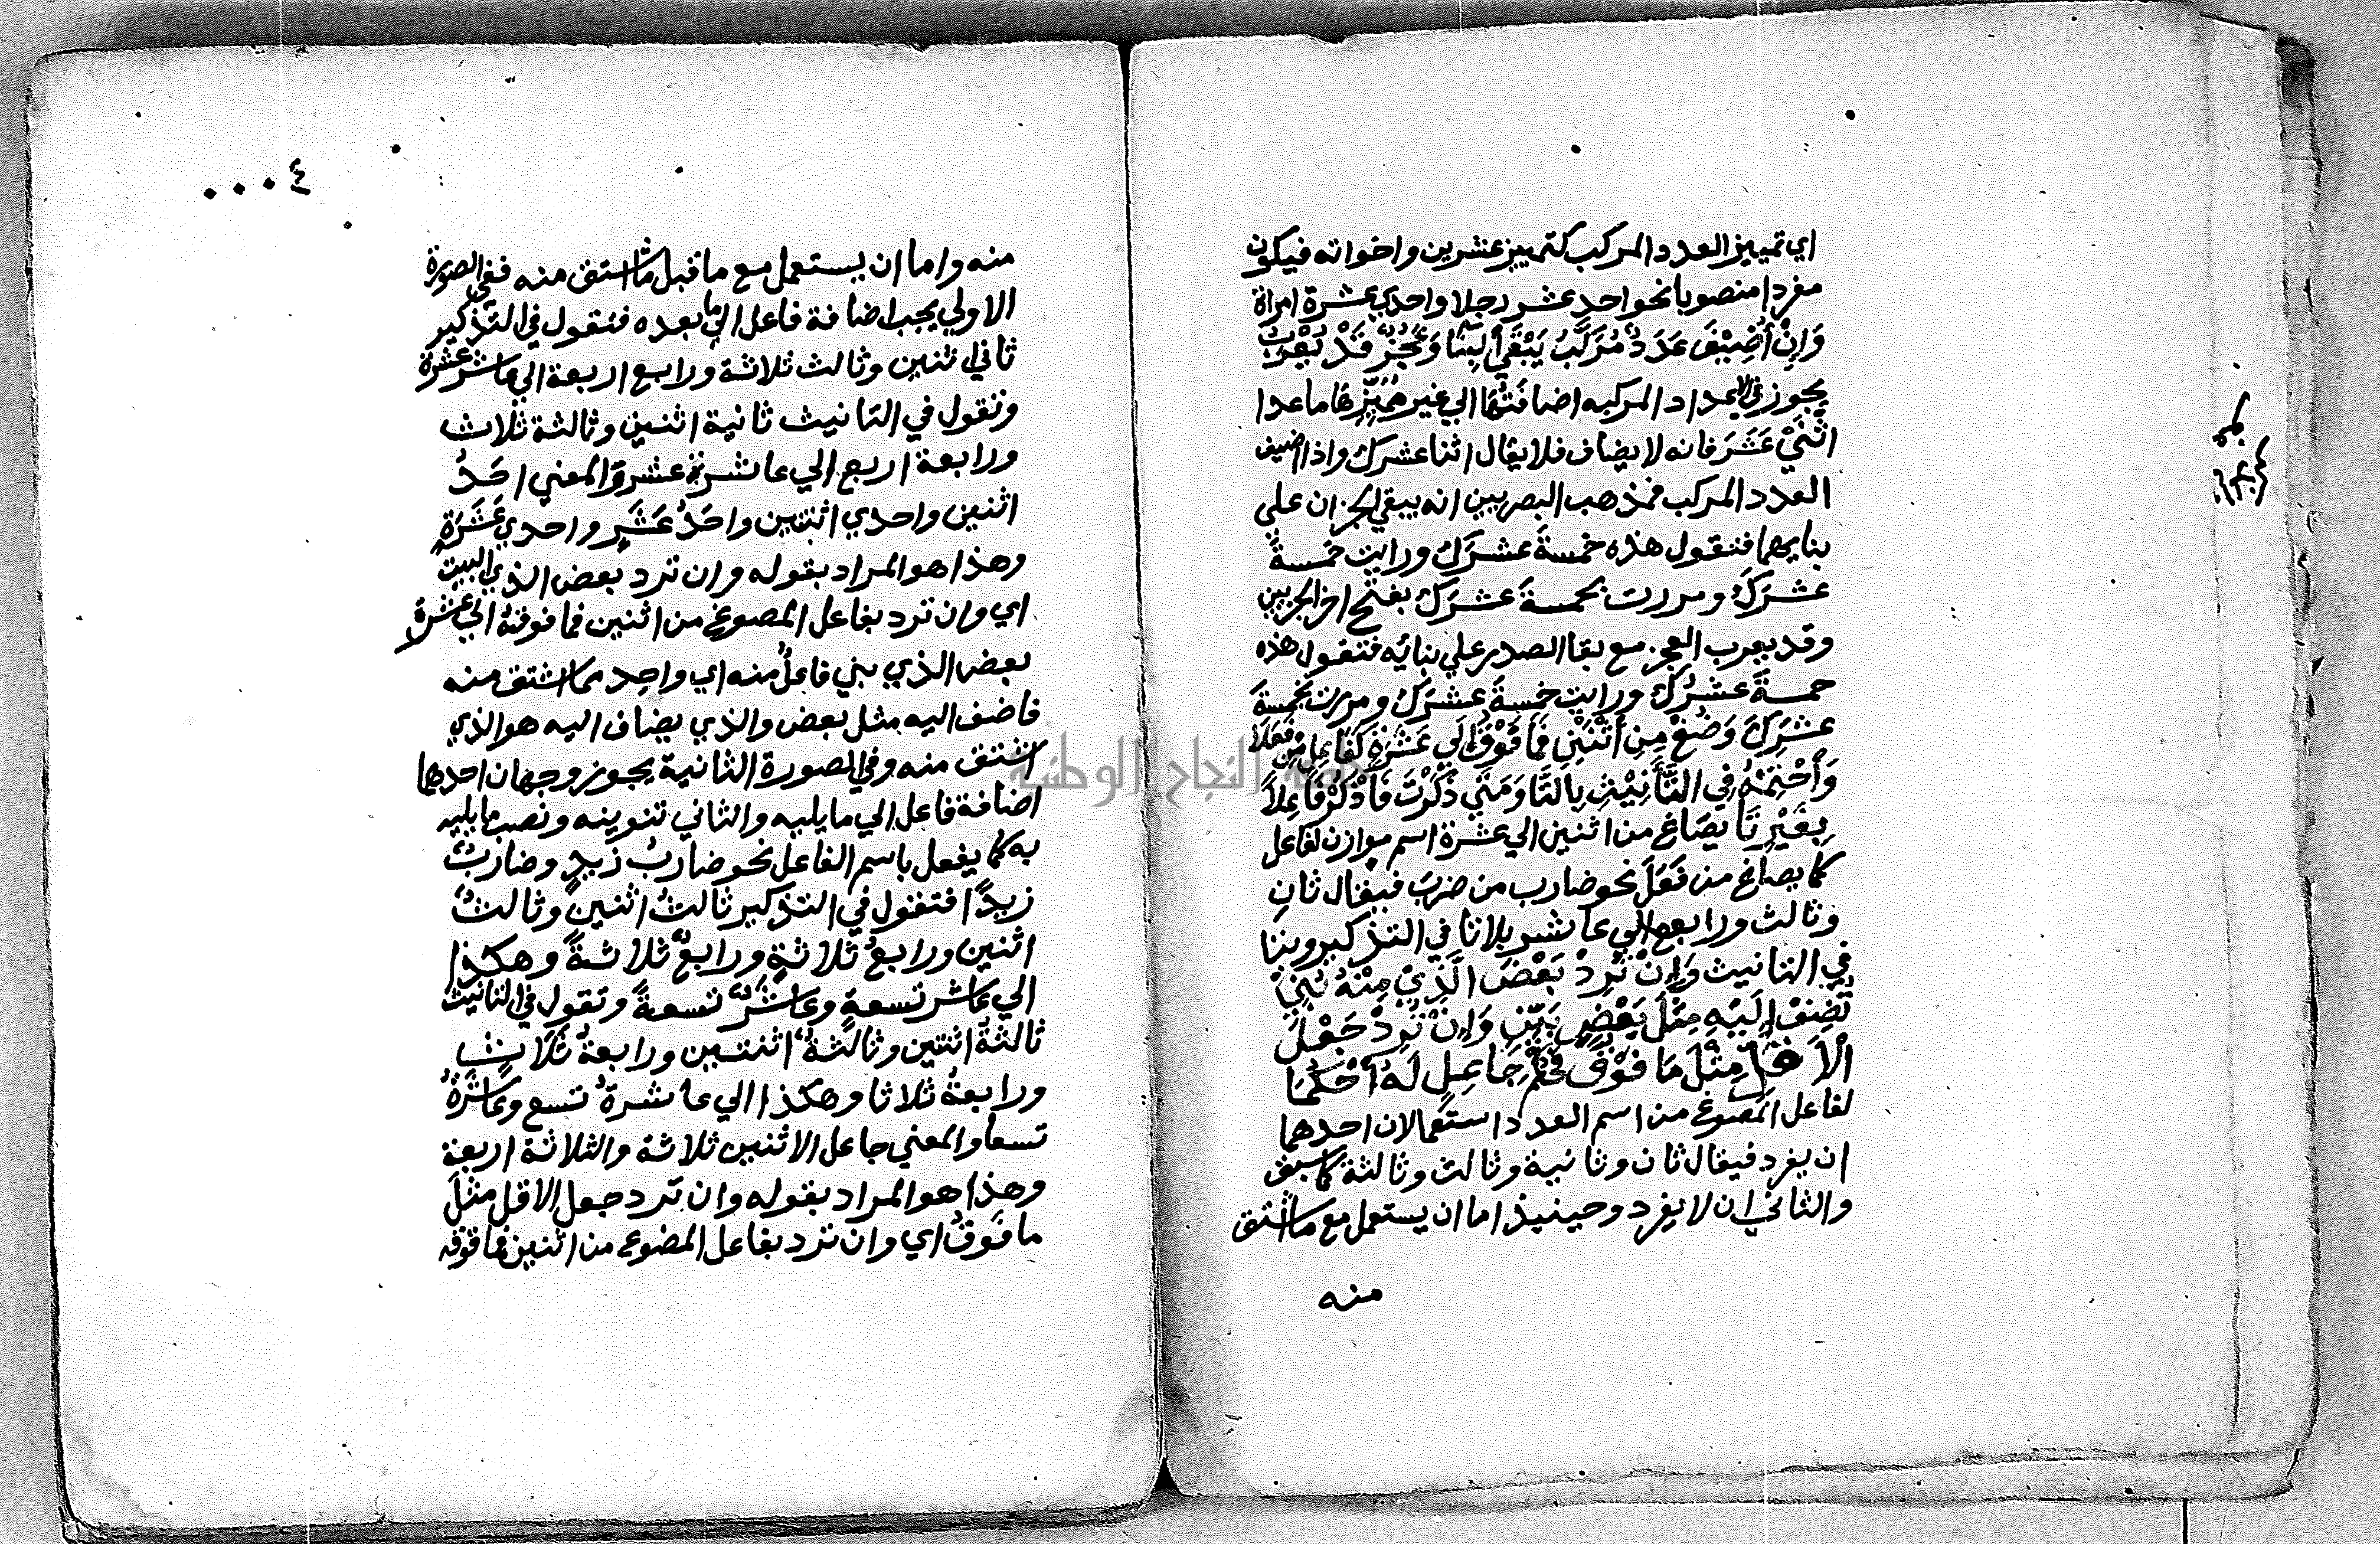 اي تمييز العدد المركب كتمييز عشرين واخواته فيكون
مفردا منصوبا نحو احد عشر رجلا واحدي عشرة امراة
وَاِنْ أُضِيْفَ عَدَدٌ مُرَكَّبُ يَبْقَي اُلبِنَا وَعَجُزٌ قَدْ يُعْرَبُ
يجوز في الاعداد المركبه اضافتها الي غير مُمَيِّزِها ماعدا
اثْنَيْ عَشَرَ فانه لا يضاف فلا يقال اثنا عشرك واذا اضيف
العدد المركب فمذهب البصريين انه يبقي الجزان علي
بنايهما فتقول هذه خمسةَ عشرَكَ ورايت خمسةَ
عشرَكَ ومررت بخمسةَ عشرَكَ بفتح اخر الجزيين
وقد يعرب العجز مع بقا الصدر علي بنائه فتقول هذه
خمسةَ عشرُكَ ورايت خمسةَ عشرَكَ ومررت بخمسةَ
عشرِكَ وَصُغْ مِنِ اُثْنَيْنِ فَمَا فَوْقُ إلَي عَشْرَةِ كَفَاعِلٍ مِنْ فَعَلَا
وَاُخْتِمْهُ فِي التَّأنِيْثِ بِالتَّا وَمَتَي ذَكَّرْتَ فَاذْكُرْ فَاعِلاً
بِغَيْرِ تَا يصَاغ من اثنين الي عشرة اسم موازن لفاعل
كما يصاغ من فَعَلَ نحو ضارب من ضربَ فيقال ثانٍ
وثالث ورابع الي عاشر بلا تا في التذكير وبتا
في التانيث وَاِنْ تُرِدْ بَعْضَ الَّذِيْ مِنْهُ بُنِيْ
تُضِفْ إلَيْهِ مِثْلَ بَعْضٍ بَيِّنِ وَإِنْ تُرِدْ جَعْلَ
الْأقَلِّ مِثْلَ مَا فَوْقُ فَحُكْمَ جَاعِلٍ لَهُ اُحْكُمَا
لفاعل المصوغ من اسم العدد استعمالان احدهما
ان يفرد فيقال ثان وثانية وثالث وثالثة كما سبق
والثاني ان لا يفرد وحينيذ اما ان يستعمل مع ما اشتق
منه
٤٠٠٠
منه واما ان يستعمل مع ما قبل ما اشتق منه ففي الصورة
الاولي يجب اضافة فاعل الي ما بعده فتقول في التذكير
ثاني اثنين وثالث ثلاثة ورابع اربعة الي عاشر عشرة
وتقول في التانيث ثانية اثنتين وثالثة ثلاث
ورابعة اربع الي عاشرة عشر والمعني احَدُ
اثنين واحدي اثنتين واحَدُ عَشَرٍ واحدي عَشَرَةٍ
وهذا هو المراد بقوله وان ترد بعض الذي البيت
اي وان ترد بفاعل المصوغ من اثنين فما فوقه الي عشرة
بعض الذي بني فاعلٌ منه اي واحد مما اشتق منه
فاضف اليه مثل بعض والذي يضاف اليه هو الذي
اشتق منه وفي الصورة الثانية يجوز وجهان احدهما
اضافة فاعل الي ما يليه والثاني تنوينه ونصب ما يليه
به كما يفعل باسم الفاعل نحو ضاربُ زيدٍ وضاربٌ
زيدًا فتقول في التذكير ثالثُ اثنين وثالثٌ
اثنين ورابعُ ثلاثةٍ ورابعٌ ثلاثةً وهكذا
الي عاشر تسعةٍ وعاشرٌ تسعةً وتقول في التانيث
ثالثةُ اثنتين وثالثةٌ اثنتين ورابعةُ ثلاثٍ
ورابعةٌ ثلاثا وهكذا الي عاشرةُ تسع وعاشرةٌ
تسعا والمعني جاعل الاثنين ثلاثة والثلاثة اربعة
وهذا هو المراد بقوله وان ترد جعل الاقل مثلَ
ما فوقُ اي وان ترد بفاعل المصوغ من اثنين فما فوقه